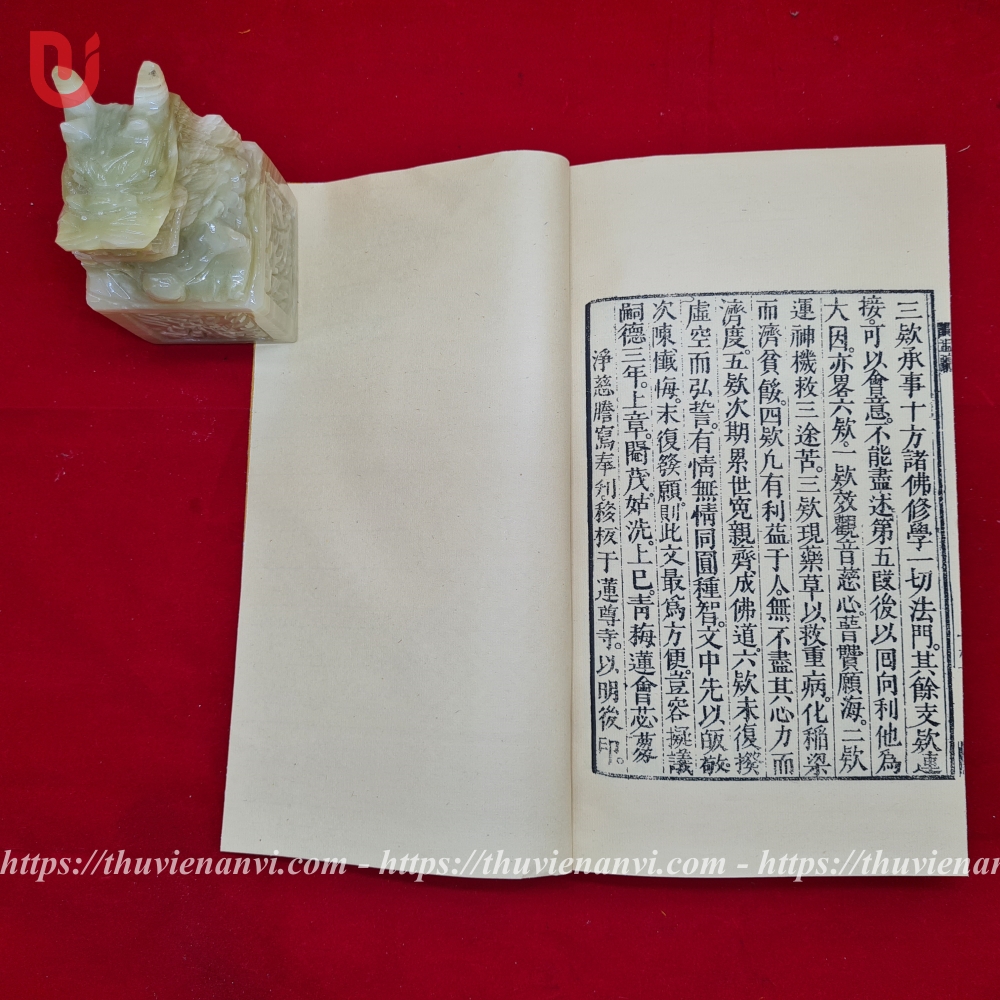 三欵承事十方諸佛修學一切法門。其餘支欵連
接。可以會意。不能盡述第五叚後以囘向利他為
大因。亦畧六欵。一欵效觀音慈心。普賢願海。二欵
運神機救三途苦。三欵現藥草以救重病。化稻梁
而濟貧餒。四欵凢有利益于人。無不盡其心力而
濟度。五欵次期累世寃親齊成佛道。六欵末復撥
虛空而弘誓。有情無情同圓種智。文中先以皈敬
次陳懺悔。末復發願。則此文最為方便。豈容擬議
嗣德三年。上章閹茂。姑洗。上巳。青梅蓮會苾蒭
淨慈謄寫奉刋。移板于蓮尊寺。以明後印。
https://thuvienanvi.com - https://thuvienanvi.com - https://thuvienanvi